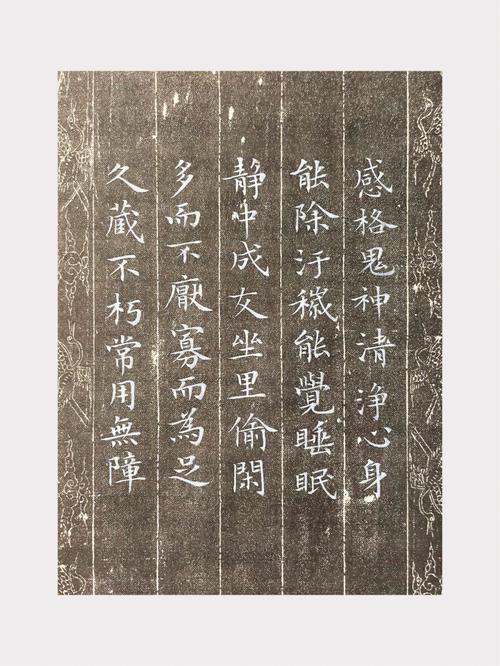 感格鬼神清浄心身
能除汙穢能覺睡眠
静中成女坐里偷閑
多而不厭寡而為足
久蔵不朽常用無障